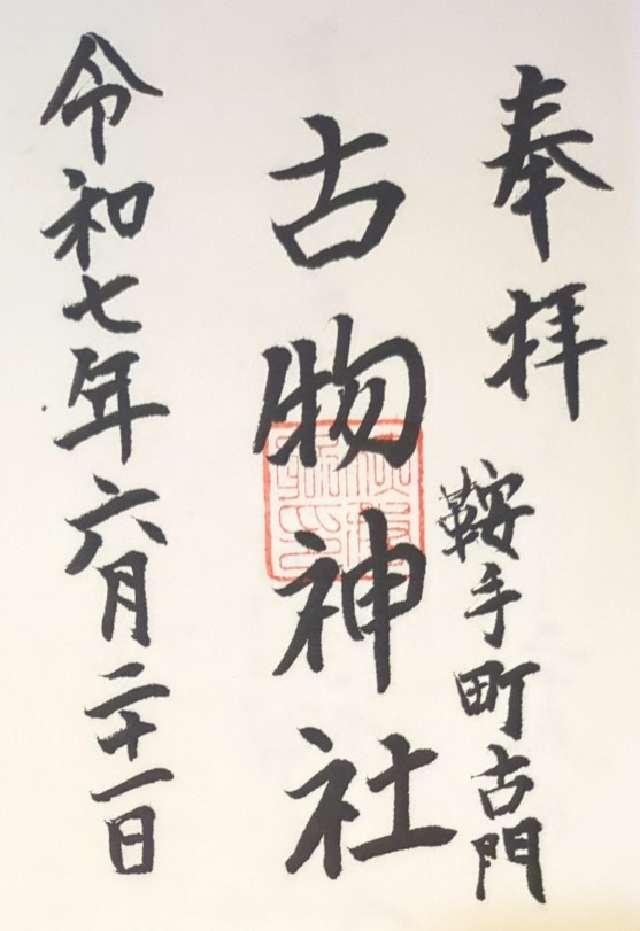 奉拝
鞍手町古門
古物神社
令和七年六月二十一日